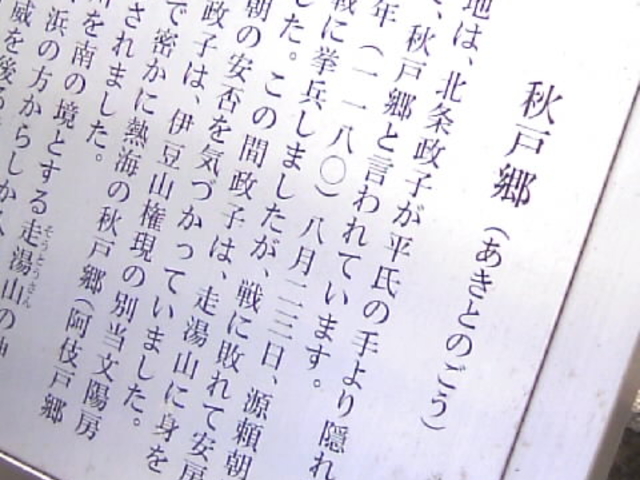 秋戸郷（あきとのごう）
地は、北条政子が平氏の手より隠れ
、秋戸郷と言われています。
年（一一八〇）八月二三日、源頼朝
戦に挙兵しましたが、戦に敗れて安房
した。この間政子は、走湯山に身を
朝の安否を気づかっていました。
政子は、伊豆山権現の別当文陽房
で密かに熱海の秋戸郷（阿伎戸郷
されました。
を南の境とする走湯山の神
浜の方からしか入
威を後る